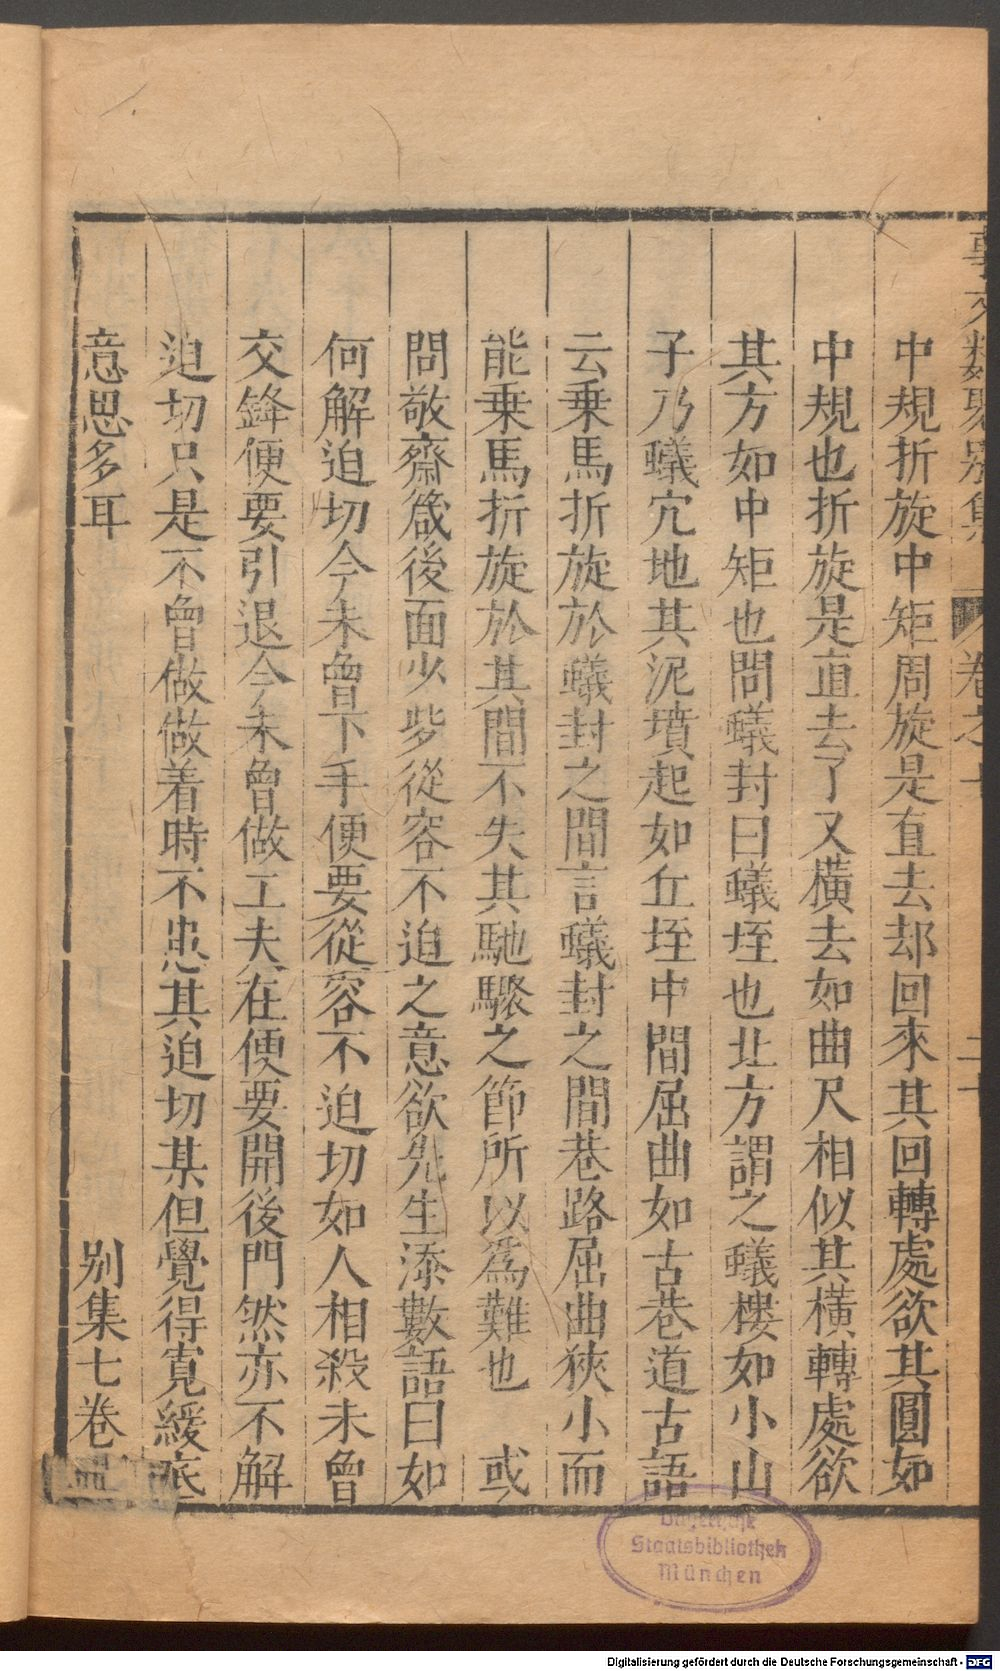 事文類聚別集 卷之七 二十
中規折旋中矩周旋是直去却回來其回轉處欲其圓如
中規也折旋是直去了又橫去如曲尺相似其橫轉處欲
其方如中矩也問蟻封曰蟻垤也北方謂之蟻樓如小山
子乃蟻穴地其泥墳起如丘垤中間屈曲如古巷道古語
云乗馬折旋於蟻封之間言蟻封之間巷路屈曲狹小而
能乗馬折旋於其間不失其馳驟之節所以爲難也 或
問敬齋箴後面少些從容不迫之意欲先生添數語曰如
何解迫切今未曾下手便要從容不迫切如人相殺未曾
交鋒便要引退今未曾做工夫在便要開後門然亦不解
迫切只是不曾做做着時不患其迫切某但覺得寬緩底
意思多耳 别集七巻
Bayerische
Staatsbibliothek
München
Digitalisierung gefördert durch die Deutsche Forschungsgemeinschaft - DFG